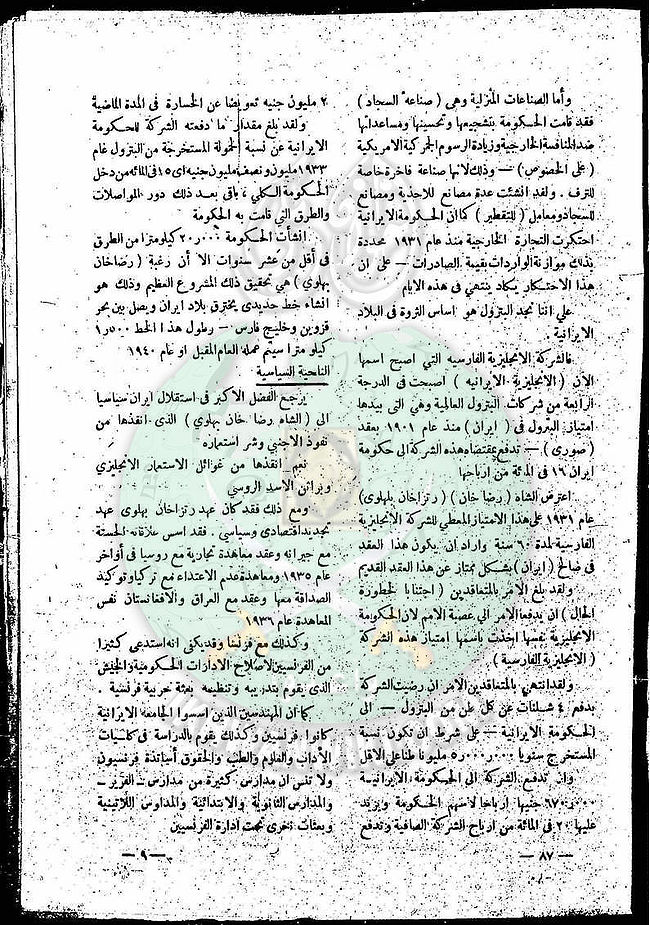 وأما الصناعات المنزلية وهي ( صناعة السجاد )
فقد قامت الحكومة بتشجيعها وتحسينها ومساعداتها
ضد المنافسة الخارجية وزيادة الرسوم الجمركية الامريكية
( على الخصوص ) — وذلك لانها صناعة فاخرة خاصة
للترف . ولقد انشئت عدة مصانع للاحذية ومصانع
للسجاد ومعامل ( للتقطير ) كما ان الحكومة الايرانية
احتكرت التجارة الخارجية منذ عام ١٩٣١ محددة
بذلك موازنة الواردات بقيمة الصادرات — على ان
هذا الاحتكار يكاد ينتهي فى هذه الايام
على اننا نجد البترول هو اساس الثروة فى البلاد
الايرانية
فالشركة الانجليزية الفارسيه التي اصبح اسمها
الآن ( الانجليزية الايرانيه ) اصبحت فى الدرجة
الرابعة من شركات البترول العالمية وهى التى بيدها
امتياز البترول فى ( ايران ) منذ عام ١٩٠١ بعقد
( صورى ) — تدفع بمقتضاه هذه الشركة الى حكومة
ايران ١٦ فى المائة من ارباحها
اعترض الشاه ( رضا خان ) ( رتزاخان بلهلوى )
عام ١٩٣١ على هذا الامتياز المعطي للشركة الانجليزية
الفارسية لمدة ٦٠ سنة واراد ان يكون هذا العقد
فى صالح ( ايران ) بشكل ممتاز عن هذا العقد القديم
ولقد بلغ الامر بالمتعاقدين ( اجتنابا لخطورة
الحال ) ان يدفعا الامر الى عصبة الامم لان الحكومة
الانجليزية نفسها اخذت باسمها امتياز هذه الشركة
( الانجليزية الفارسية )
ولقد انتهى بالمتعاقدين الامر ان رضيت الشركة
بدفع ٤ شلنات عن كل طن من البترول — الى
الحكومة الايرانية — على شرط ان تكون نسبة
المستخرج سنويا ٥٠٠٠ر٠٠٠ مليونا طنا على الاقل
وان تدفع الشركة الى الحكومة الايرانية
٦٧٠ر٠٠٠ جنيها ارباحا لاسهم الحكومة ويزد
عليها ٢٠ فى المائة من ارباح الشركة الصافية وتدفع
— ٨٧ —
٢ مليون جنيه تعويضا عن الخسارة فى المدة الماضية
ولقد بلغ مقدار ما دفعته الشركة للحكومة
الايرانية عن نسبة الحمولة المستخرجة من البترول عام
١٩٣٣ مليون ونصف مليون جنيه اى ١٥ فى المائه من دخل
الحكومة الكلى ، باقى بعد ذلك دور المواصلات
والطرق التي قامت به الحكومة
انشأت الحكومة ٢٠ر٠٠٠ كيلومترا من الطرق
فى أقل من عشر سنوات الا أن رغبة ( رضاخان
بهلوى ) هي تحقيق ذلك المشروع العظيم وذلك هو
انشاء خط حديدى يخترق بلاد ايران ويصل بين بحر
قزوين وخليج فارس — وطول هذا الخط ١٥٠٠
كيلو مترا سيتم عمله العام المقبل او عام ١٩٤٠
الناحية السياسية
يرجع الفضل الاكبر فى استقلال ايران سياسيا
الى ( الشاه رضا خان بهلوى ) الذى انقذها من
نفوذ الاجنبي وشر استعماره
نعم انقذها من غوائل الاستعمار الانجليزي
وبراثن الاسد الروسي
ومع ذلك فقد كان عهد رتزاخان بهلوى عهد
تجديد اقتصادى وسياسي . فقد اسس علاقاته الحسنة
مع جيرانه وعقد معاهدة تجارية مع روسيا فى أواخر
عام ١٩٣٥ ومعاهدة عدم الاعتداء مع تركيا وتوكيد
الصداقة معها وعقد مع العراق والافغانستان نفس
المعاهدة عام ١٩٣٦
وكذلك مع فرنسا وقد يكفى انه استدعى كثيرا
من الفرنسيين لاصلاح الادارات الحكومية والجيش
الذى يقوم بتدريبه وتنظيمه بعثة حربية فرنسية .
كما ان المهندسين الذين اسسوا الجامعة الايرانية
كانوا فرنسيين وكذلك يقوم بالدراسة فى كلميات
الآداب والعلوم والطب والحقوق أساتذة فرنسيون
ولا تنس ان مدارس كثيرة من مدارس — الفرير —
والمدارس الثانوية والابتدائية والمدارس اللاتينية
وبعثات اخرى تحت ادارة الفرنسيين
— ٩ —